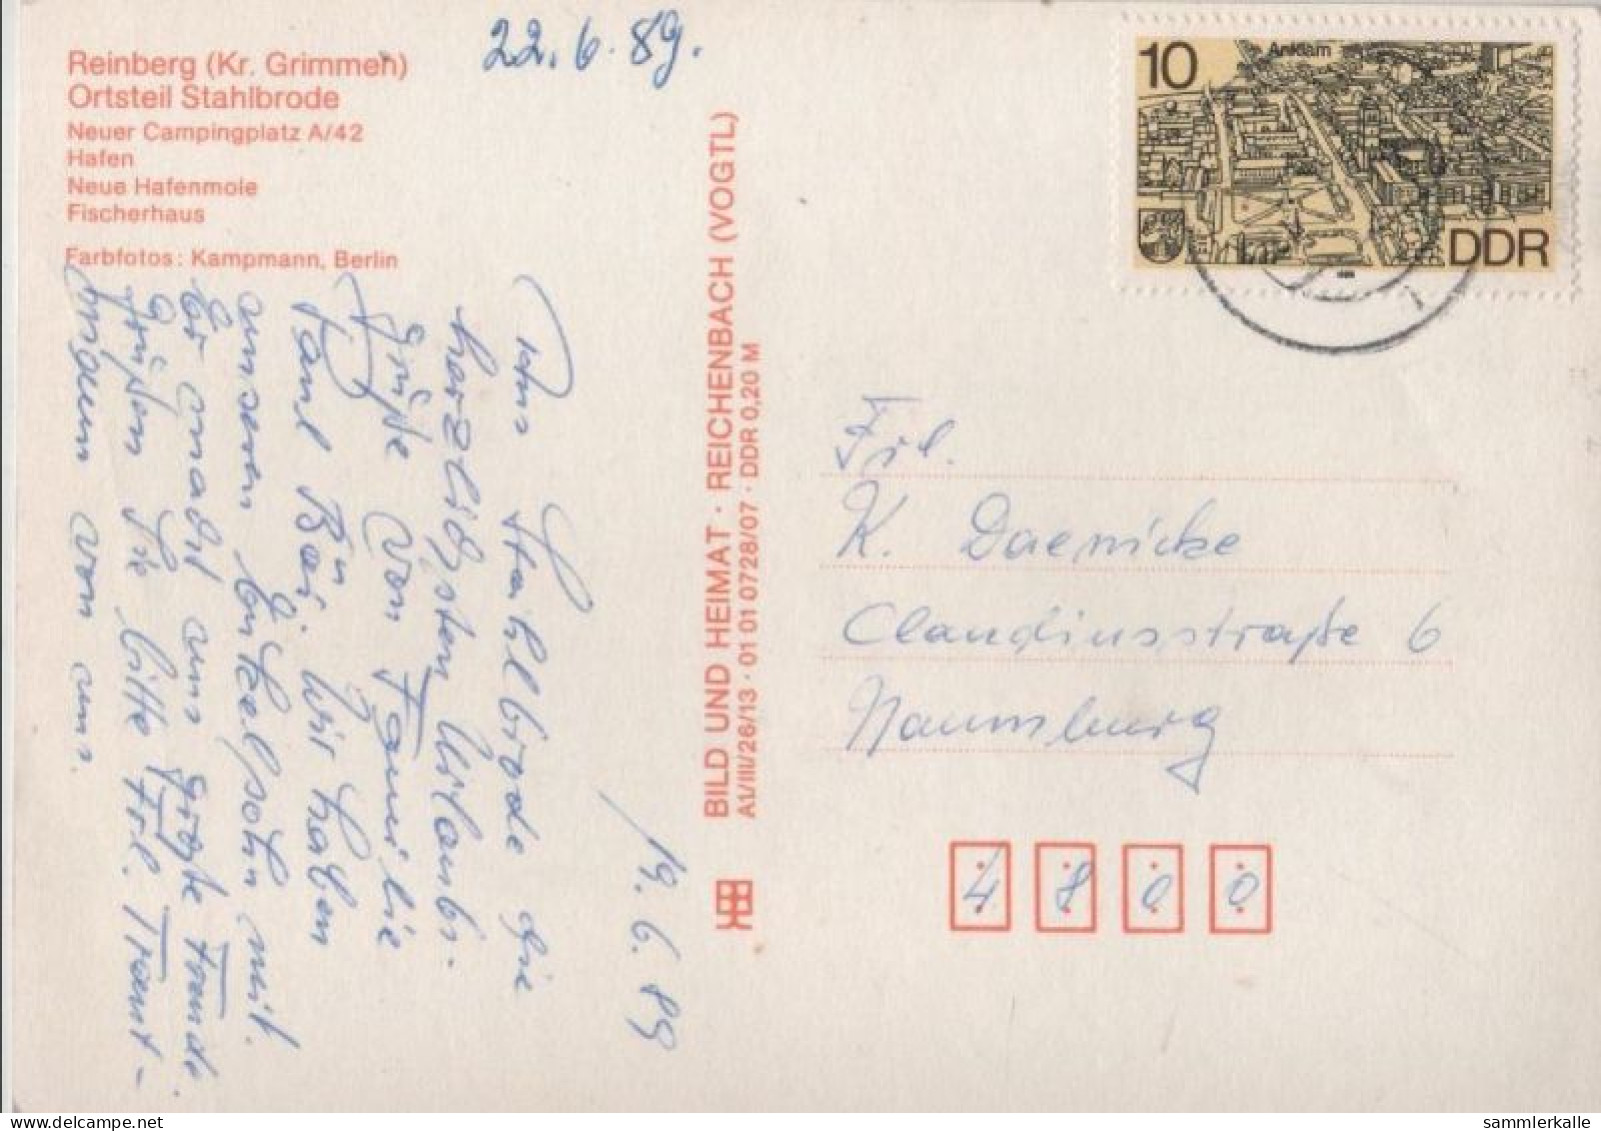 22.6.89.
Reinberg (Kr. Grimmen)
Ortsteil Stahlbrode
Neuer Campingplatz A/42
Hafen
Neue Hafenmole
Fischerhaus
Farbfotos: Kampmann, Berlin
19.6.89
Aus Stahlbrode die
herzlichsten Urlaubs-
grüße von Familie
Paul Bär. Wir haben
unseren Enkelsohn mit.
Er macht uns große Freude.
Grüßen Sie bitte Frl. Traut-
mann von uns.
BILD UND HEIMAT · REICHENBACH (VOGTL)
A1/III/26/13 · 01 01 0728/07 · DDR 0,20 M
10
Anklam
DDR
Frl.
K. Daenicke
Claudiusstraße 6
Naumburg
4800
sammlerkalle